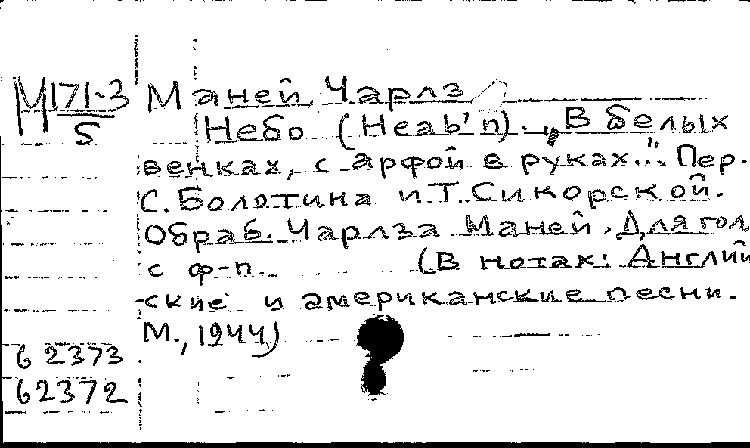 М171-3 Маней, Чарлз
5 Небо (Heab'n). „В белых
венках, с арфой в руках..." Пер.
С. Болотина и Т. Сикорской.
Обраб. Чарлза Маней. Для гол.
с ф-п. (В нотах: Англий-
ские и американские песни.
М., 1944)
62373
62372